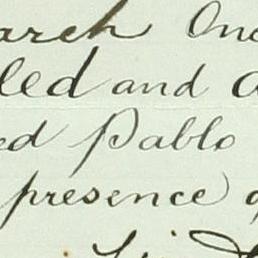 arch One
led and
ed Pablo
presence